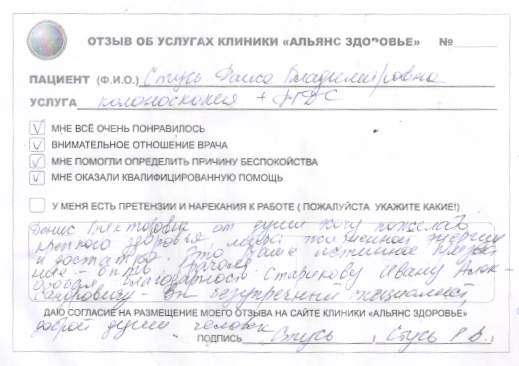 ОТЗЫВ ОБ УСЛУГАХ КЛИНИКИ «АЛЬЯНС ЗДОРОВЬЕ» №
ПАЦИЕНТ (Ф.И.О.) Стусь Раиса Владимировна
УСЛУГА колоноскопия + ФГДС
МНЕ ВСЁ ОЧЕНЬ ПОНРАВИЛОСЬ
ВНИМАТЕЛЬНОЕ ОТНОШЕНИЕ ВРАЧА
МНЕ ПОМОГЛИ ОПРЕДЕЛИТЬ ПРИЧИНУ БЕСПОКОЙСТВА
МНЕ ОКАЗАЛИ КВАЛИФИЦИРОВАННУЮ ПОМОЩЬ
У МЕНЯ ЕСТЬ ПРЕТЕНЗИИ И НАРЕКАНИЯ К РАБОТЕ ( ПОЖАЛУЙСТА УКАЖИТЕ КАКИЕ!)
Денис Викторович от души хочу пожелать
крепкого здоровья, жизненной энергии
и достатка. Это Ваше истинное
быть врачом
Особая благодарность Старикову Ивану Алек-
сандровичу - он безупречный специалист,
ДАЮ СОГЛАСИЕ НА РАЗМЕЩЕНИЕ МОЕГО ОТЗЫВА НА САЙТЕ КЛИНИКИ «АЛЬЯНС ЗДОРОВЬЕ»
доброй души человек
ПОДПИСЬ Стусь , Стусь Р.В.